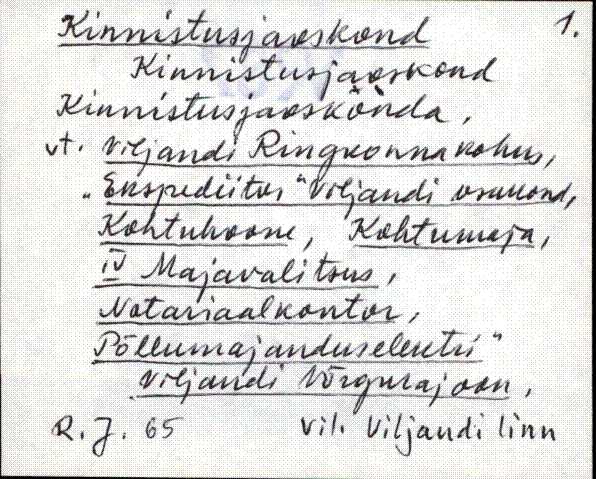 Kinnistusjaoskond 1.
Kinnistusjaoskond
Kinnistusjaoskõnda,
vt. Viljandi Ringkonnakohus,
„Ekspediitor" Viljandi osakond,
Kohtuhoone, Kohtumaja,
IV Majavalitsus,
Notariaalkontor,
Põllumajanduselektri"
Viljandi Võrgurajoon,
R. J. 65 Vil. Viljandi linn